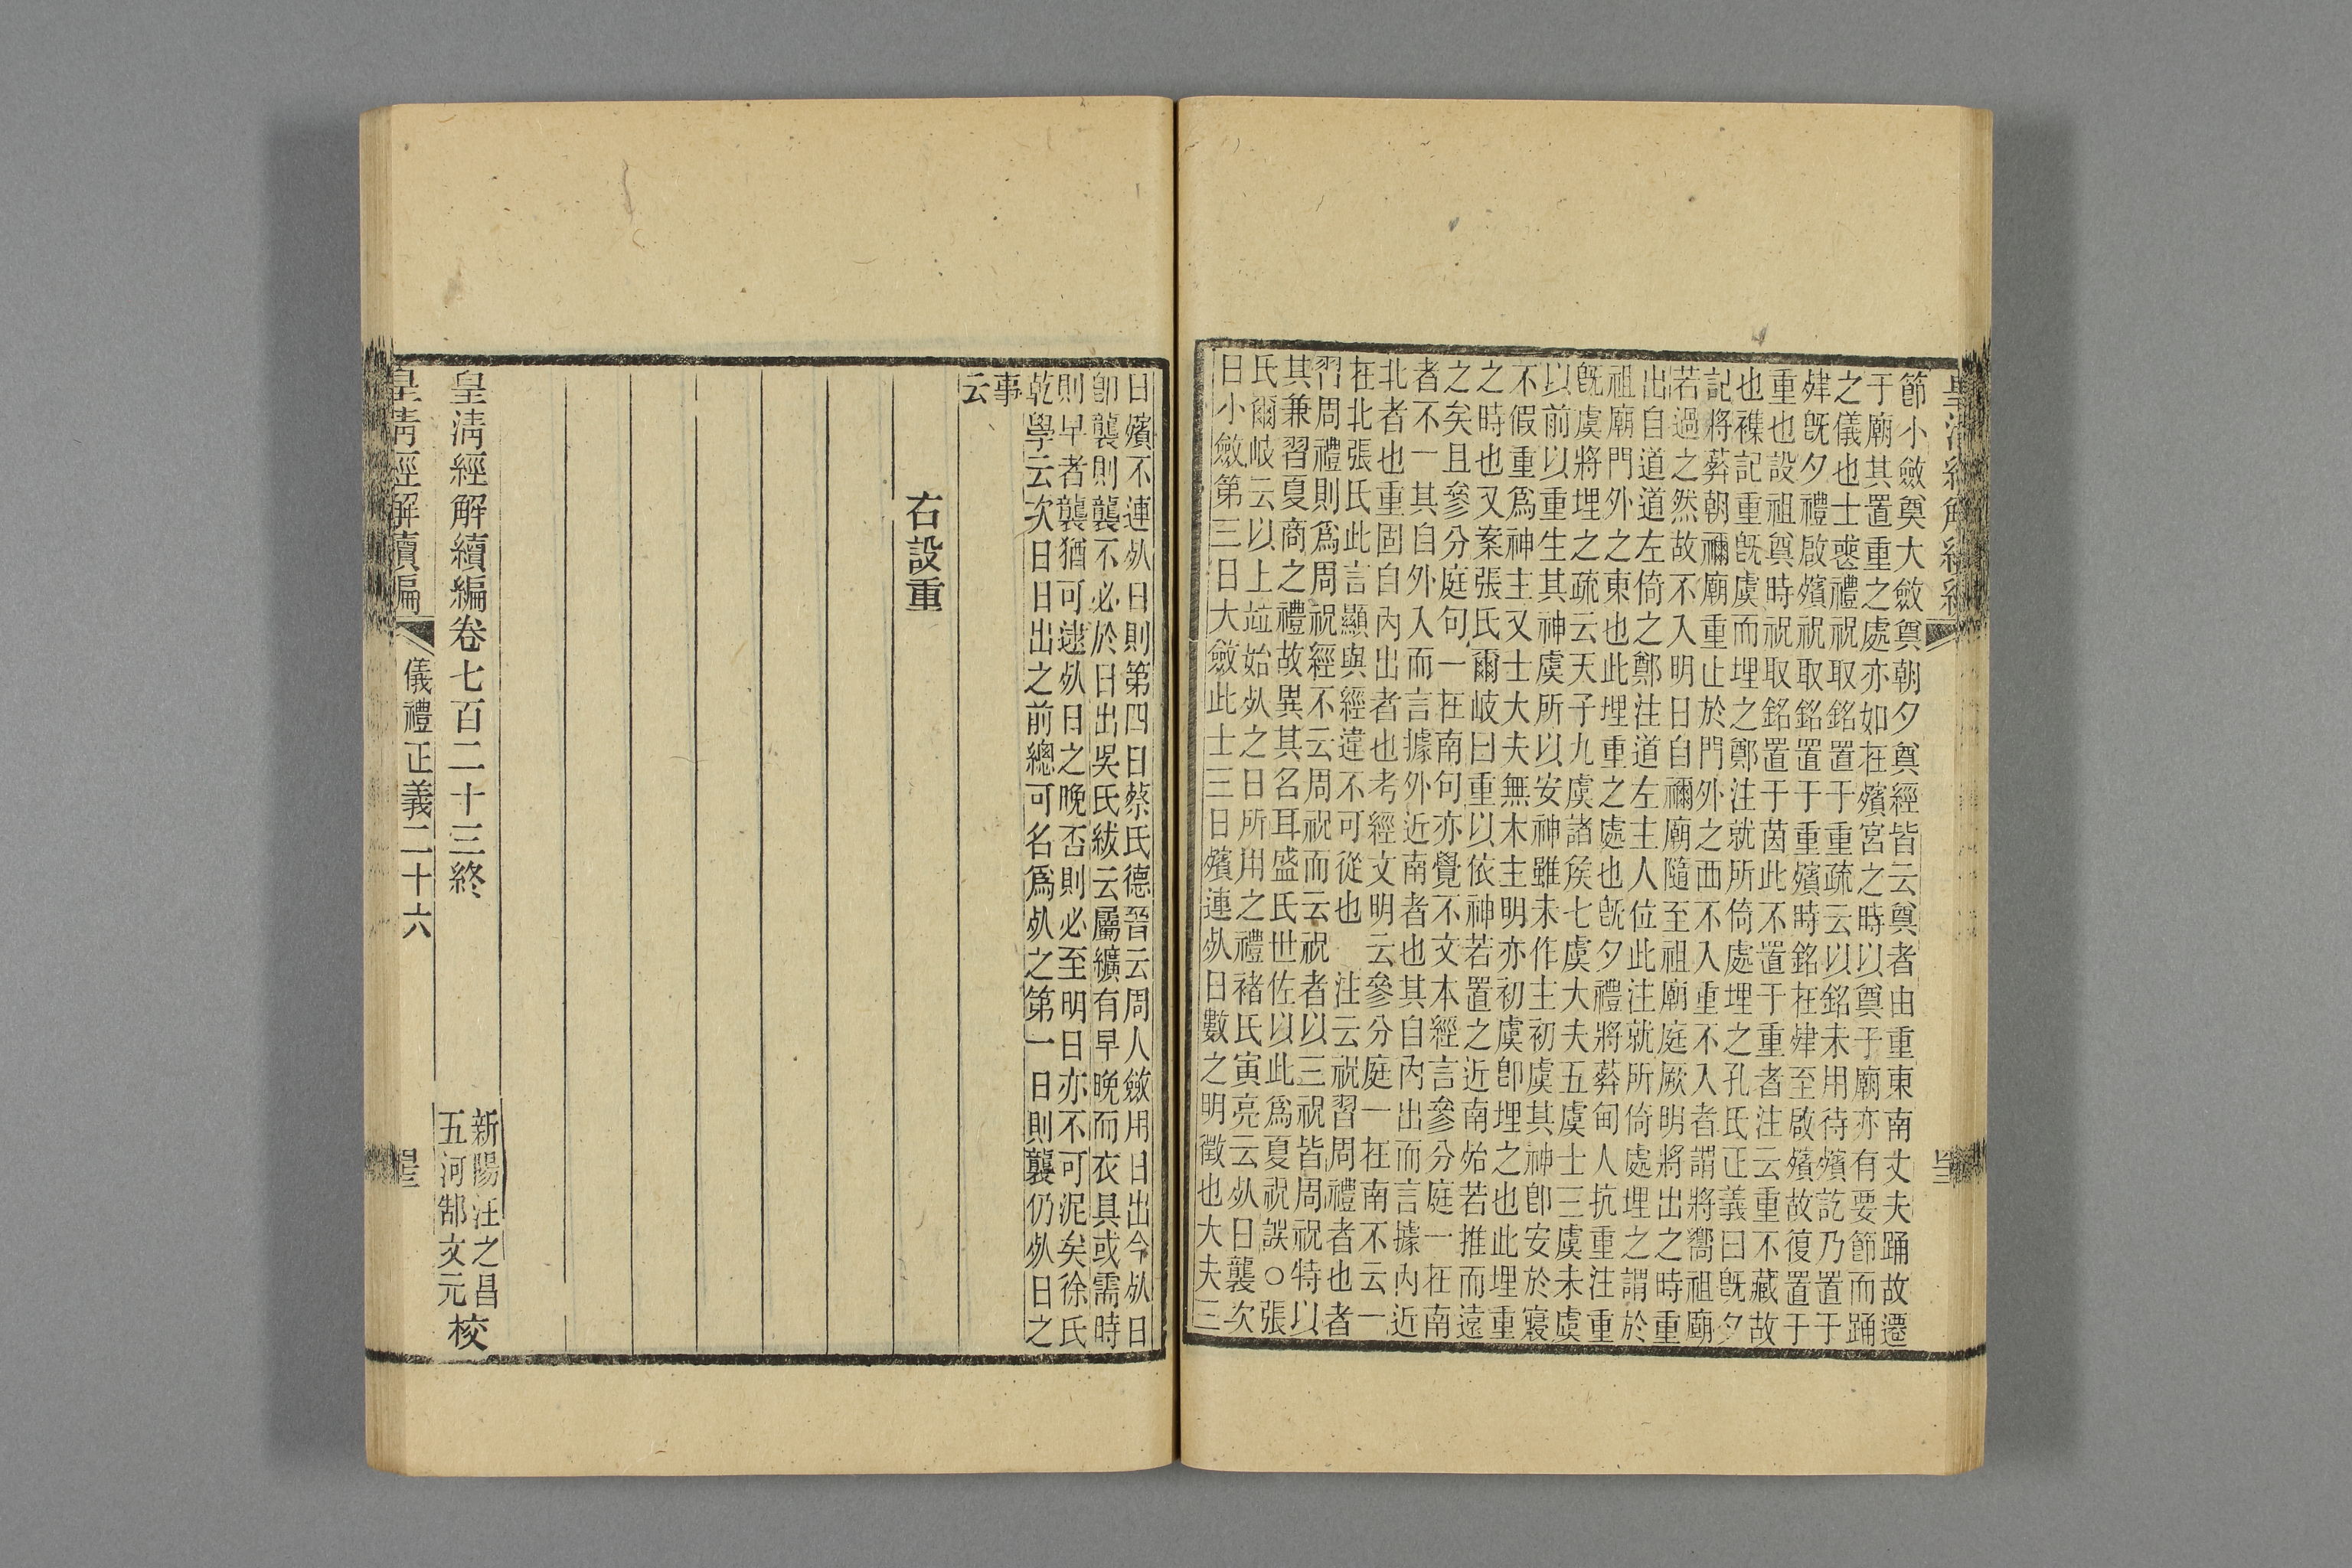 節小斂奠大斂奠朝夕奠經皆云奠者由重東南丈夫踊故遷
于廟其置重之處亦如在殯宮之時以奠于廟亦有要節而踊
之儀也士喪禮祝取銘置于重疏云以銘未用待殯訖乃置于
肂旣夕禮啟殯祝取銘置于重殯時銘在肂至啟殯故復置于
重也設祖奠時祝取銘置于茵此不置于重者注云重不藏故
也襍記重旣虞而埋之鄭注就所倚處埋之孔氏正義曰旣夕
記將葬朝禰廟重止於門外之西不入重不入者謂將嚮祖廟
若過之然故不入明日自禰廟隨至祖廟庭厥明將出之時重
出自道道左倚之鄭注道左主人位此注就所倚處埋之謂於
祖廟門外之東也此埋重之處也旣夕禮將葬甸人抗重注重
旣虞將埋之疏云天子九虞諸矦七虞大夫五虞士三虞未虞
以前以重生其神虞所以安神雖未作主初虞其神卽安於寢
不假重爲神主又士大夫無木主明亦初虞卽埋之也此埋重
之時也又案張氏爾岐曰重以依神若置之近南始若推而遠
之矣且參分庭句一在南句亦覺不文本經言參分庭一在南
者不一其自外入而言據外近南者也其自內出而言據內近
北者也重固自內出者也考經文明云參分庭一在南不云一
在北張氏此言顯與經違不可從也　注云祝習周禮者也者
習周禮則爲周祝經不云周祝而云祝者以三祝皆周祝特以
其兼習夏商之禮故異其名耳盛氏世佐以此爲夏祝誤○張
氏爾岐云以上竝始死之日所用之禮褚氏寅亮云死日襲次
日小斂第三日大斂此士三日殯連死日數之明徵也大夫三
日殯不連死日則第四日蔡氏德晉云周人斂用日出今死日
卽襲則襲不必於日出吳氏紱云屬纊有早晚而衣具或需時
則早者襲猶可逮死日之晚否則必至明日亦不可泥矣徐氏
乾學云次日日出之前總可名爲死之第一日則襲仍死日之
事
云
右設重
皇淸經解續編卷七百二十三終
新陽汪之昌
五河郜文元
校
皇淸經解續編
儀禮正義二十六